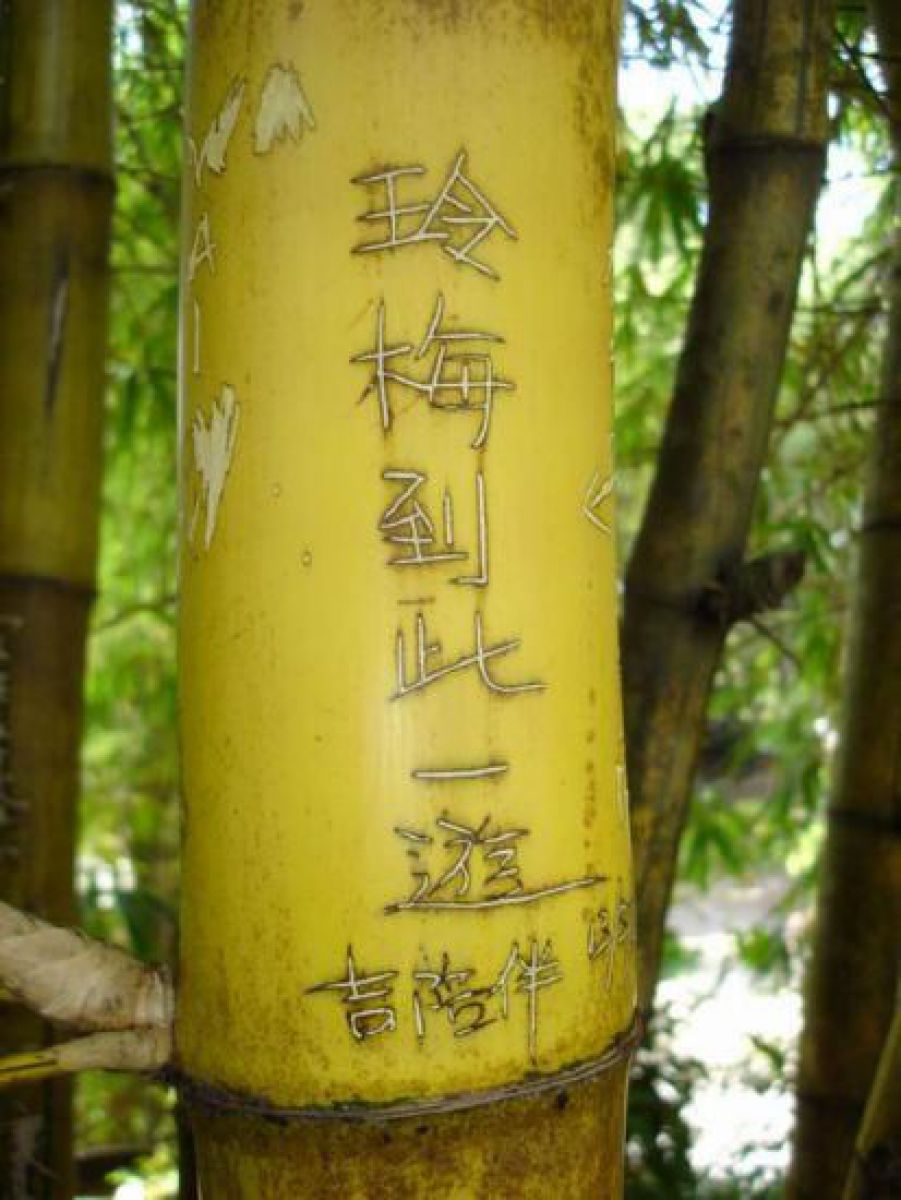 玲梅到此一遊
吉陪伴